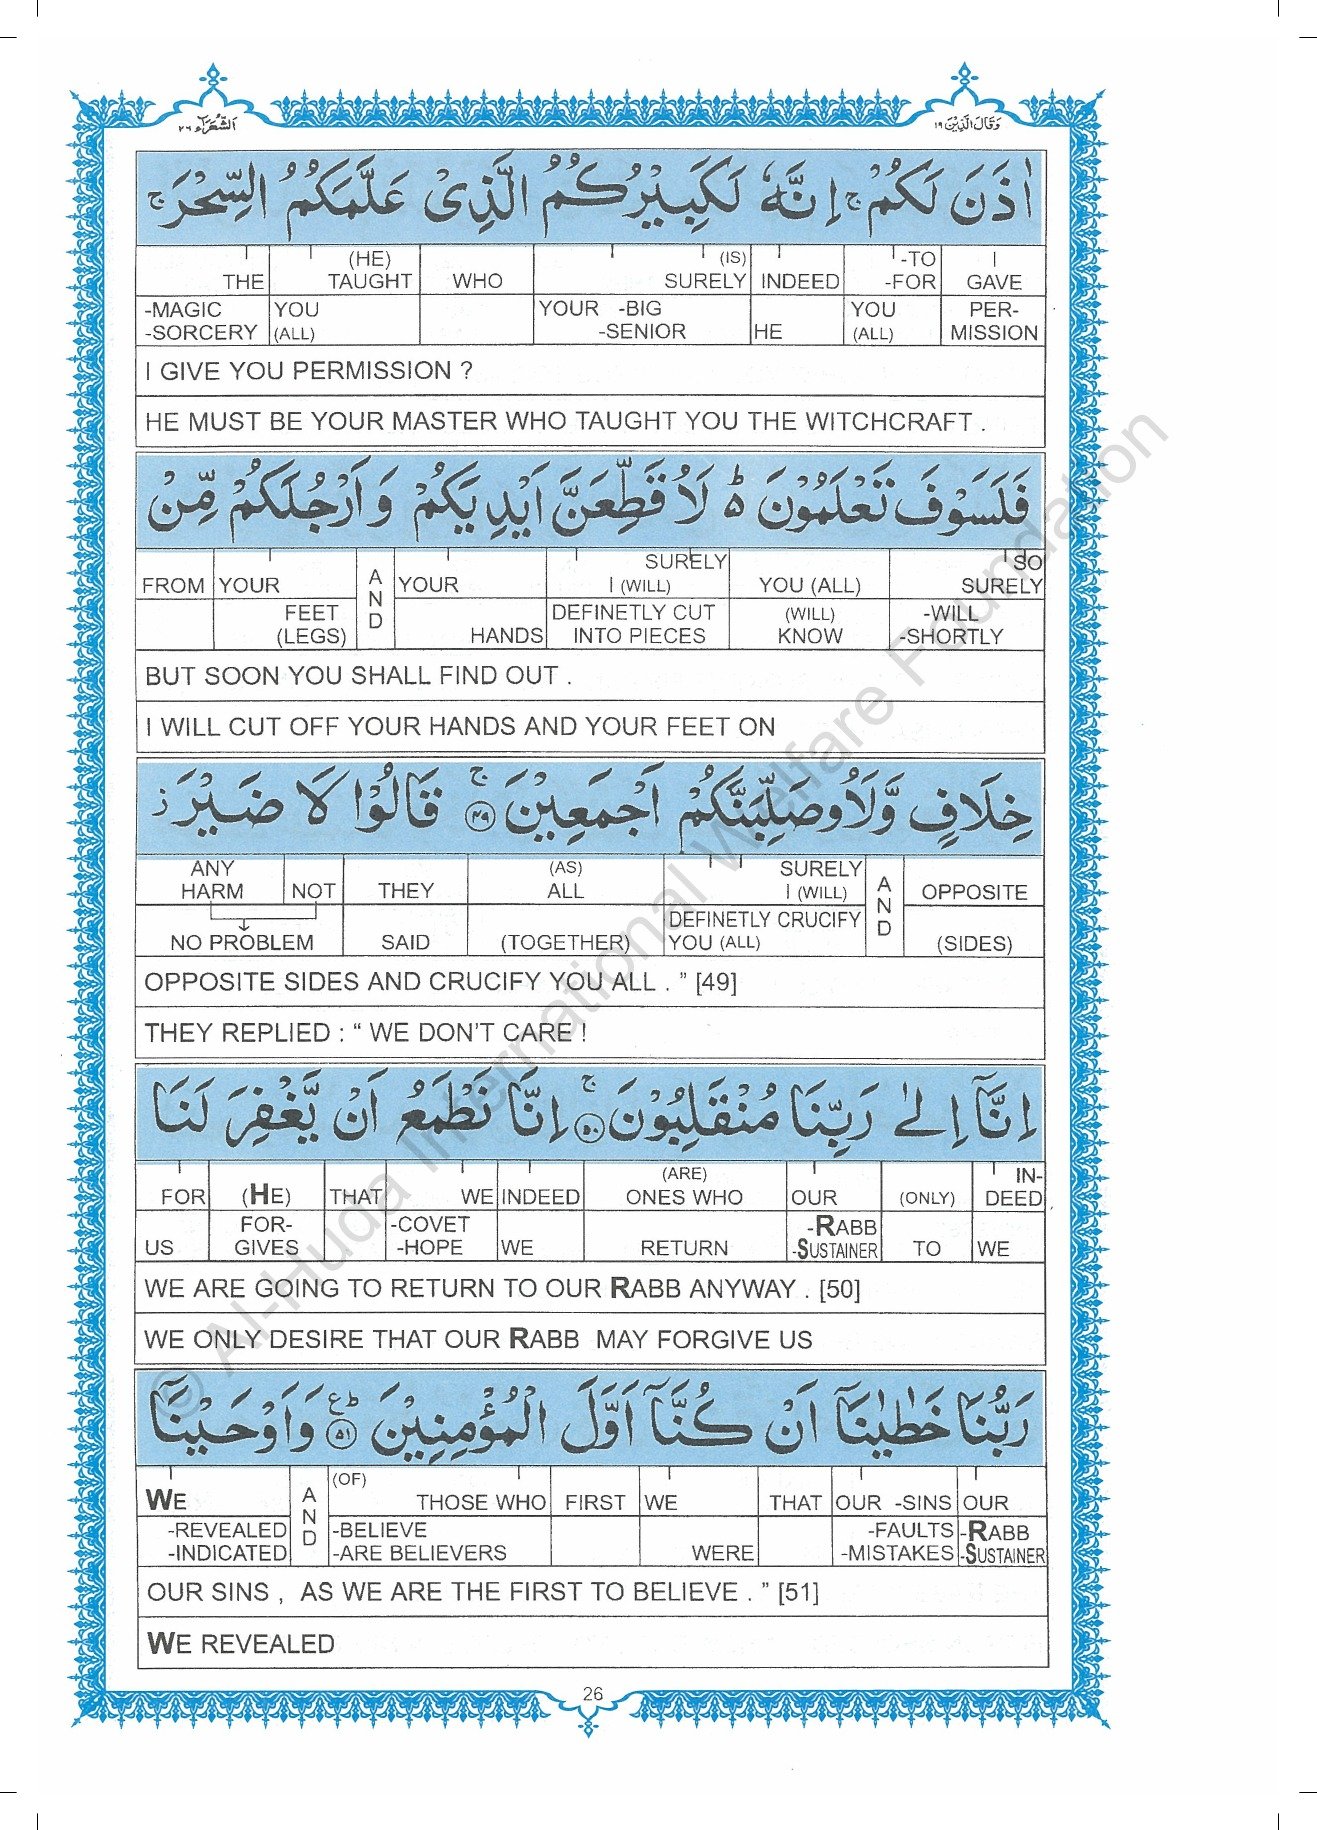 الشعراء ٢٦
وقال الذین ١٩
اٰذَنَ لَكُمْ ۚ اِنَّهٗ لَكَبِیْرُكُمُ الَّذِیْ عَلَّمَكُمُ السِّحْرَ ۚ
THE (HE) TAUGHT WHO (IS) SURELY INDEED -TO -FOR I GAVE
-MAGIC -SORCERY YOU (ALL) YOUR -BIG -SENIOR HE YOU (ALL) PER-MISSION
I GIVE YOU PERMISSION ?
HE MUST BE YOUR MASTER WHO TAUGHT YOU THE WITCHCRAFT .
فَلَسَوْفَ تَعْلَمُوْنَ ؕ لَاُقَطِّعَنَّ اَیْدِیَكُمْ وَاَرْجُلَكُمْ مِّنْ
FROM YOUR AND YOUR SURELY I (WILL) YOU (ALL) SO SURELY
FEET (LEGS) HANDS DEFINETLY CUT INTO PIECES (WILL) KNOW -WILL -SHORTLY
BUT SOON YOU SHALL FIND OUT .
I WILL CUT OFF YOUR HANDS AND YOUR FEET ON
خِلَافٍ وَّلَاُوصَلِّبَنَّكُمْ اَجْمَعِیْنَ ۚ ﴿۴۹﴾ قَالُوْا لَا ضَیْرَ ز
ANY HARM NOT THEY (AS) ALL SURELY I (WILL) AND OPPOSITE
NO PROBLEM SAID (TOGETHER) DEFINETLY CRUCIFY YOU (ALL) (SIDES)
OPPOSITE SIDES AND CRUCIFY YOU ALL . ” [49]
THEY REPLIED : “ WE DON’T CARE !
اِنَّاۤ اِلٰی رَبِّنَا مُنْقَلِبُوْنَ ۚ ﴿۵۰﴾ اِنَّا نَطْمَعُ اَنْ یَّغْفِرَ لَنَا
FOR (HE) THAT WE INDEED (ARE) ONES WHO OUR (ONLY) IN-DEED
US FOR-GIVES -COVET -HOPE WE RETURN -RABB -SUSTAINER TO WE
WE ARE GOING TO RETURN TO OUR RABB ANYWAY . [50]
WE ONLY DESIRE THAT OUR RABB MAY FORGIVE US
رَبُّنَا خَطٰیٰنَاۤ اَنْ كُنَّاۤ اَوَّلَ الْمُؤْمِنِیْنَ ؕ ع ﴿۵۱﴾ وَاَوْحَیْنَاۤ
WE AND (OF) THOSE WHO FIRST WE THAT OUR -SINS OUR
-REVEALED -INDICATED -BELIEVE -ARE BELIEVERS WERE -FAULTS -MISTAKES -RABB -SUSTAINER
OUR SINS , AS WE ARE THE FIRST TO BELIEVE . ” [51]
WE REVEALED
26
© Al-Huda International Welfare Foundation